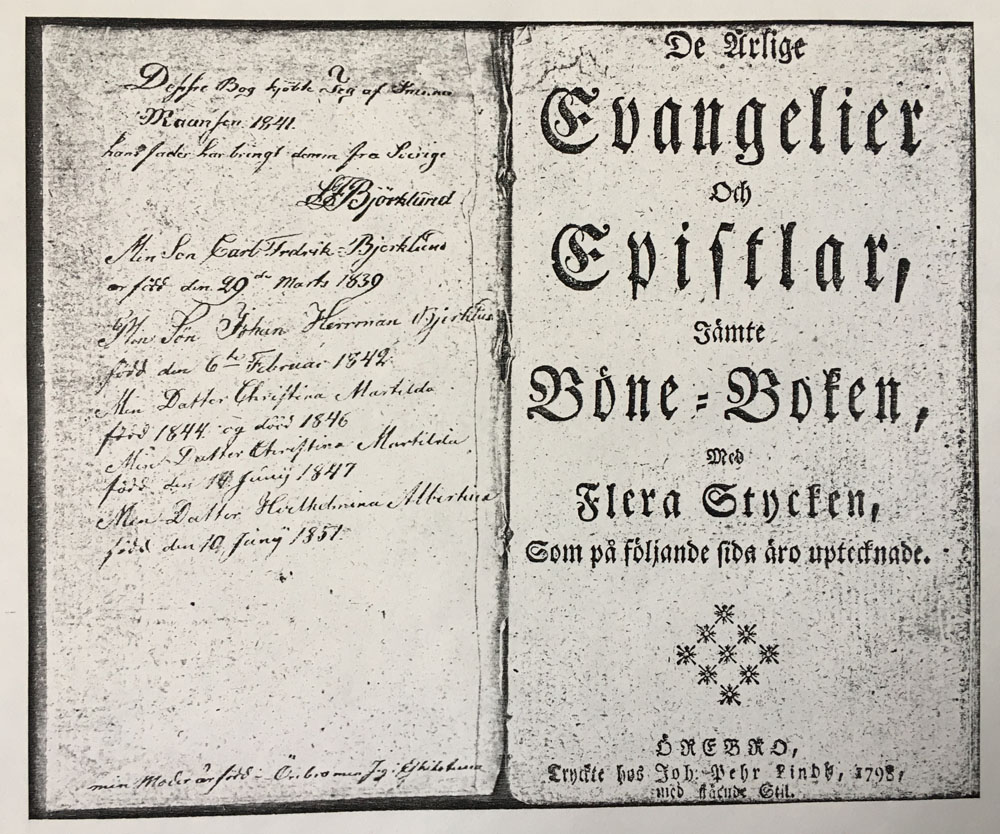 Desse Bog kjöbte Jeg af
Maansen 1841.
hans fader har bringt denne fra Sverige
Björklund
Min Son Carl Fredrik Bjerklund
er född den 29de Marts 1839
Min Sön Johan Herrman
född den 6te Februar 1842
Min Datter Christina Martilda
född 1844 og död 1846
Min Datter Christina Martilda
född den Junÿ 1847
Min Datter Albertina
född den 10 Junÿ 1851
min Moder är född i Örebro men Jeg i
De Årlige
Evangelier
Och
Epistlar,
Jämte
Böne-Boken,
Med
Flera Stycken,
Som på följande sida äro uptecknade.
ÖREBRO,
Tryckte hos Joh. Pehr Lindh, 1798,
med stående Stil.